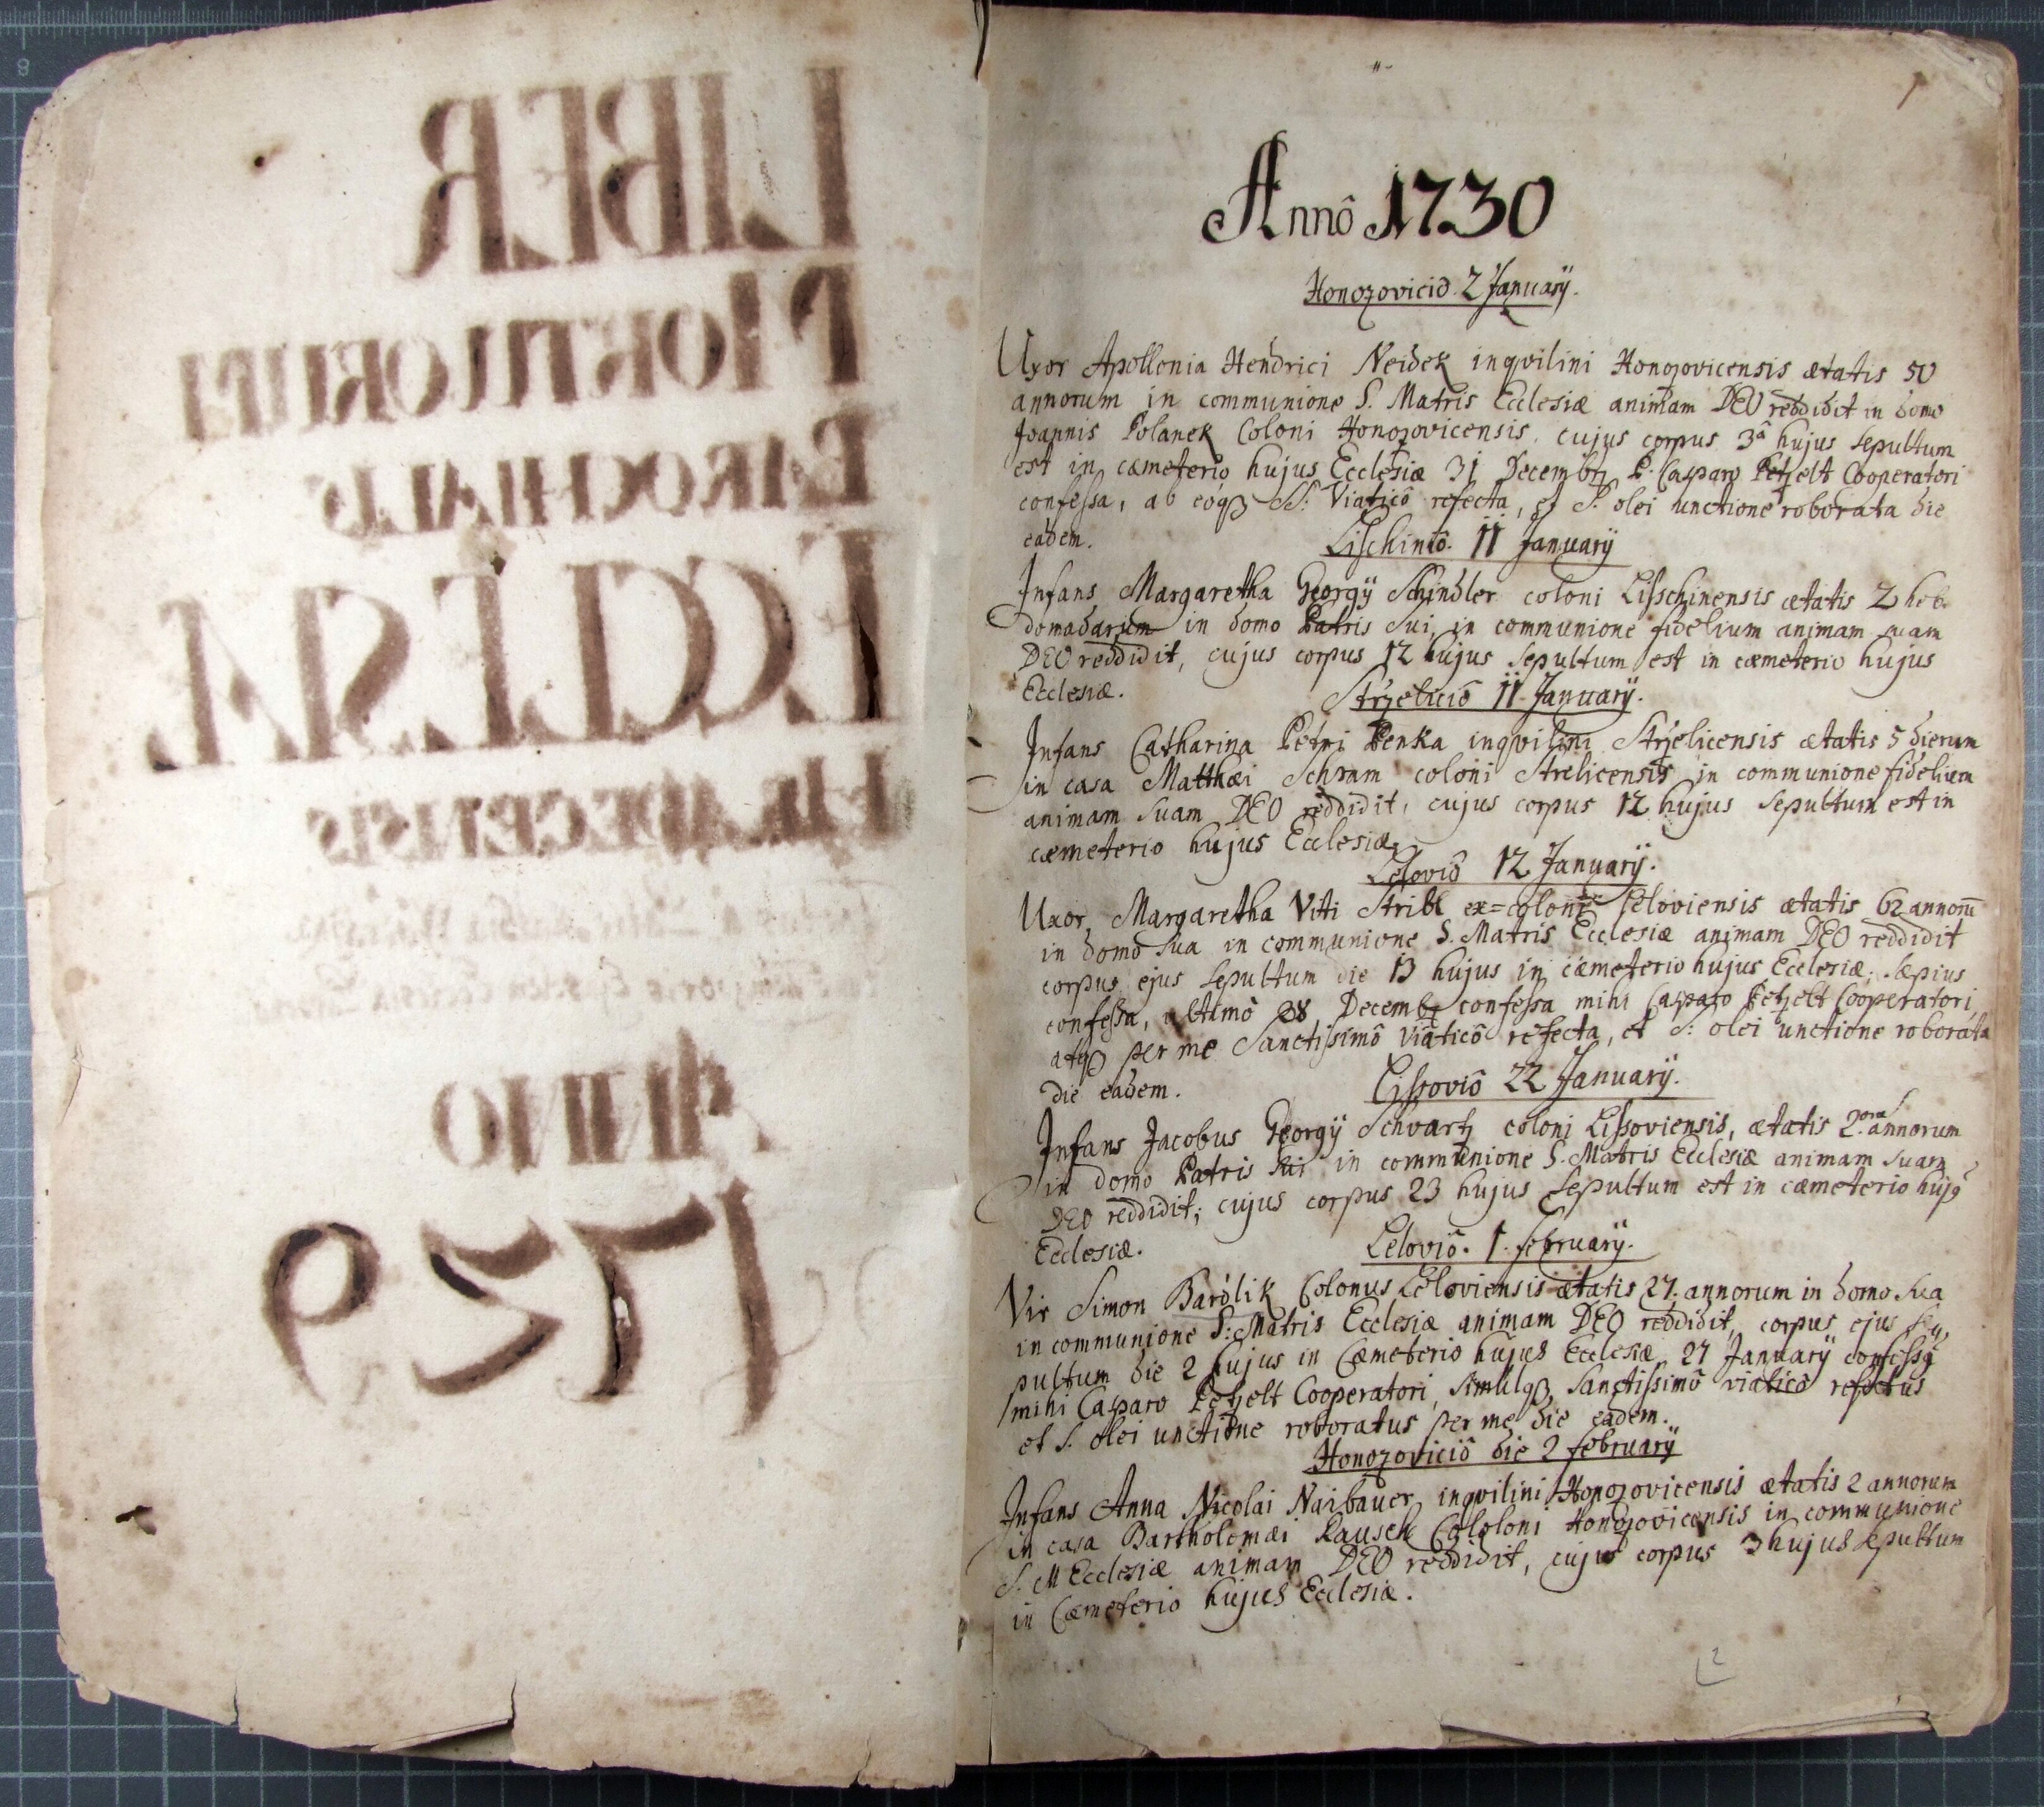 LIBER
MORTUORUM
PAROCHIALIS
ECCLESIÆ
HRADECENSIS
ANNO
1729
1
Annô 1730
Honozovicio. 2 Januarÿ.
Uxor Apollonia Hendrici Neidek inqvilini Honozovicensis ætatis 50
annorum in communione S. Matris Ecclesiæ animam DEO reddidit in domo
Joannis Polanek Coloni Honozovicensis, cujus corpus 3â hujus sepultum
est in cæmeterio hujus Ecclesiæ 31 Decembr P. Casparo Petzelt Cooperatori
confessa, ab eoqꝫ SS: Viaticô refecta, et S. olei unctione roborata die
eadem.
Lischintô. 11 Januarÿ
Infans Margaretha Georgÿ Schindler coloni Lisschinensis ætatis 2 heb
domadarum in domo Patris sui in communione fidelium animam suam
DEO reddidit, cujus corpus 12 hujus sepultum est in cæmeterio hujus
Ecclesiæ.
Strzeliciô 11 Januarÿ.
Infans Catharina Petri Penka inqvilini Strzelicensis ætatis 5 dierum
in casa Matthæi Schram coloni Strelicensis in communione fidelium
animam suam DEO reddidit, cujus corpus 12 hujus sepultum est in
cæmeterio hujus Ecclesiæ.
Leloviô 12 Januarÿ.
Uxor Margaretha Viti Stribl ex=coloni Leloviensis ætatis 62 annorū
in domo sua in communione S. Matris Ecclesiæ animam DEO reddidit
corpus ejus sepultum die 13 hujus in cæmeterio hujus Ecclesiæ; sæpius
confessa, ultimô 28 Decembr confessa mihi Casparo Petzelt Cooperatori
atqꝫ per me Sanctissimô viaticô refecta, et S: olei unctione roborata
die eadem.
Lissoviô 22 Januarÿ.
Infans Jacobus Georgÿ Schvartz coloni Lissoviensis, ætatis 2.orum annorum
in domo Patris sui in communione S. Matris Ecclesiæ animam suam
DEO reddidit; cujus corpus 23 hujus sepultum est in cæmeterio hujꝰ
Ecclesiæ.
Leloviô. 1. februarÿ.
Vir Simon Barólik Colonus Leloviensis ætatis 27. annorum in domo sua
in communione S: Matris Ecclesiæ animam DEO reddidit, corpus ejus se
pultum die 2 hujus in Cæmeterio hujus Ecclesiæ 27 Januarÿ confessꝰ
mihi Casparo Petzelt Cooperatori, simulqꝫ Sanctissimô viaticô refectus
et S. olei unctione roboratus per me die eadem.
Honozoviciô die 2 februarÿ
Infans Anna Nicolai Naibauer inqvilini Honozovicensis ætatis 2 annorum
in casa Bartholomæi Rausch Cololoni Honozovicensis in communione
S. M Ecclesiæ animam DEO reddidit, cujus corpus 3 hujus sepultum
in Cæmeterio hujus Ecclesiæ.
2